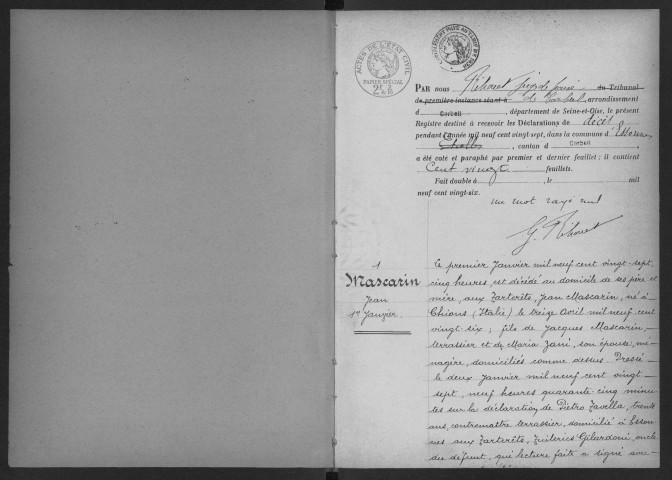 ACTES DE L'ÉTAT CIVIL
PAPIER SPÉCIAL
PAR nous Ribouet juge de paix du Tribunal
de première instance séant à de Corbeil, arrondissement
d Corbeil, département de Seine-et-Oise, le présent
Registre destiné à recevoir les Déclarations de décès
pendant l'année mil neuf cent vingt-sept, dans la commune d'Essonnes
Etiolles, canton d Corbeil,
a été coté et paraphé par premier et dernier feuillet; il contient
Cent vingt feuillets.
Fait double à , le mil
neuf cent vingt-six.
un mot rayé nul
G. Ribouet
1
Mascarin
Jean
1er Janvier.
Le premier Janvier mil neuf cent vingt-sept,
cinq heures, est décédé au domicile de ses père et
mère, aux Tarterêts, Jean Mascarin, né à
Chions (Italie) le treize Avril mil neuf cent
vingt-six; fils de Jacques Mascarin,
terrassier et de Maria Zani, son épouse, mé-
nagère, domiciliés comme dessus. Dressé
le deux Janvier mil neuf cent vingt-
sept, neuf heures quarante-cinq minu-
tes sur la déclaration de Pietro Zavella, trente
ans, contremaître terrassier, domicilié à Esson-
nes aux Tarterêts, Tuileries Gilardoni, oncle
du défunt, qui lecture faite a signé avec